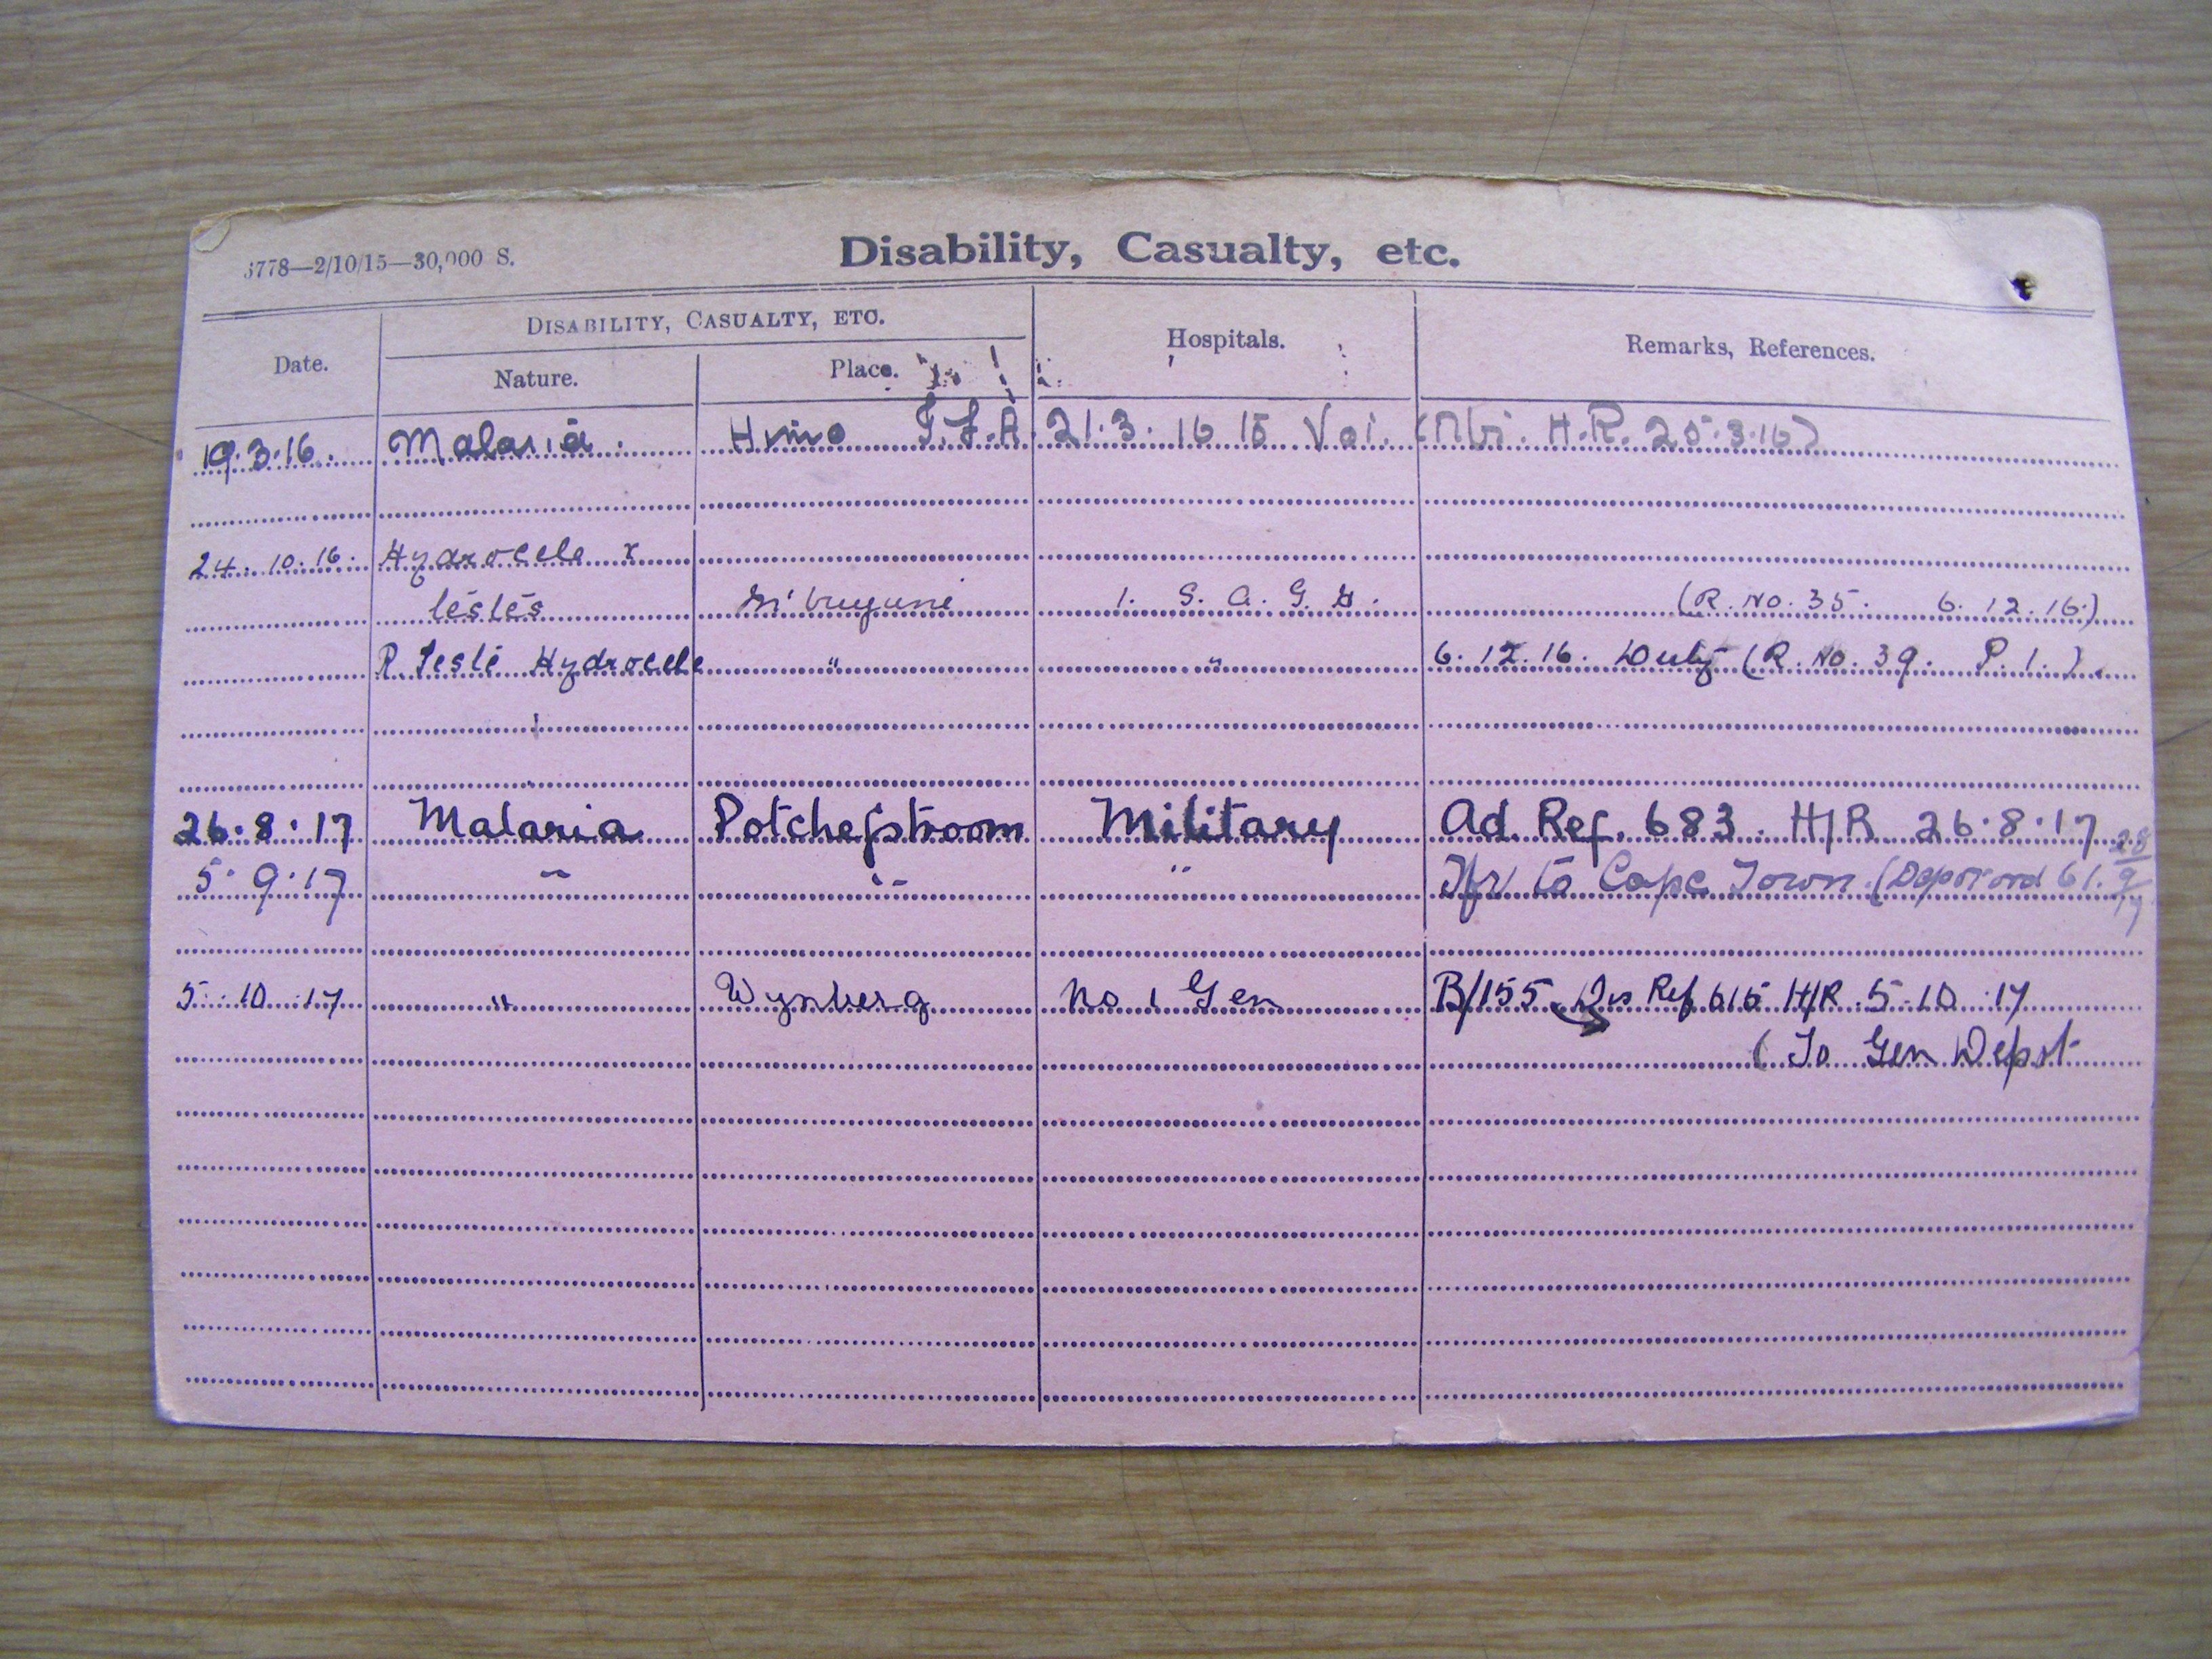 3778—2/10/15—30,000 S.
Disability, Casualty, etc.
Date. DISABILITY, CASUALTY, ETC. Hospitals. Remarks, References.
Nature. Place.
19.3.16. Malaria. Himo F.A. 21.3.16 to Voi. H.R. 25.3.16)
24.10.16. Hydrocele r
testes M'buyuni 1. S.A.G.H. (R. No. 35. 6.12.16.)
R. Teste Hydrocele " " 6.12.16. Duty (R. No. 39. P.1.)
26.8.17 Malaria Potchefstroom Military Ad. Ref. 683. H/R 26.8.17
5.9.17 " " " Tfr to Cape Town. (Depot ord 61. 28/9/17
5.10.17 " Wynberg No 1 Gen B/155 Dis Ref 615 H/R 5.10.17
(To Gen Depot